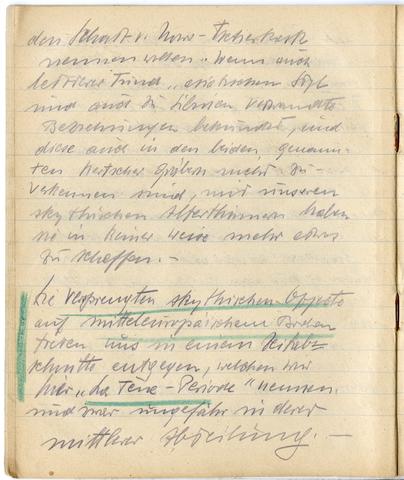 den Schatz v. Novo-Tscherkask
nennen wollen. Wenn auch
letzterer Fund „asiatischen Styl
und auch zu Sibirien verwandte
Beziehungen bekundet, und
diese auch in den beiden genann-
ten Kertscher Gräbern nicht zu
verkennen sind, mit unseren
skythischen Alterthümern haben
sie in keiner weise mehr etwas
zu schaffen. –
Die versprengten skythischen Objecte
auf mitteleuropäischem Boden
treten uns in einem Zeitab-
schnitte entgegen, welchen wir
hier „La Tene-Periode" nennen
und zwar ungefähr in derer
mittlerer Abteilung. –